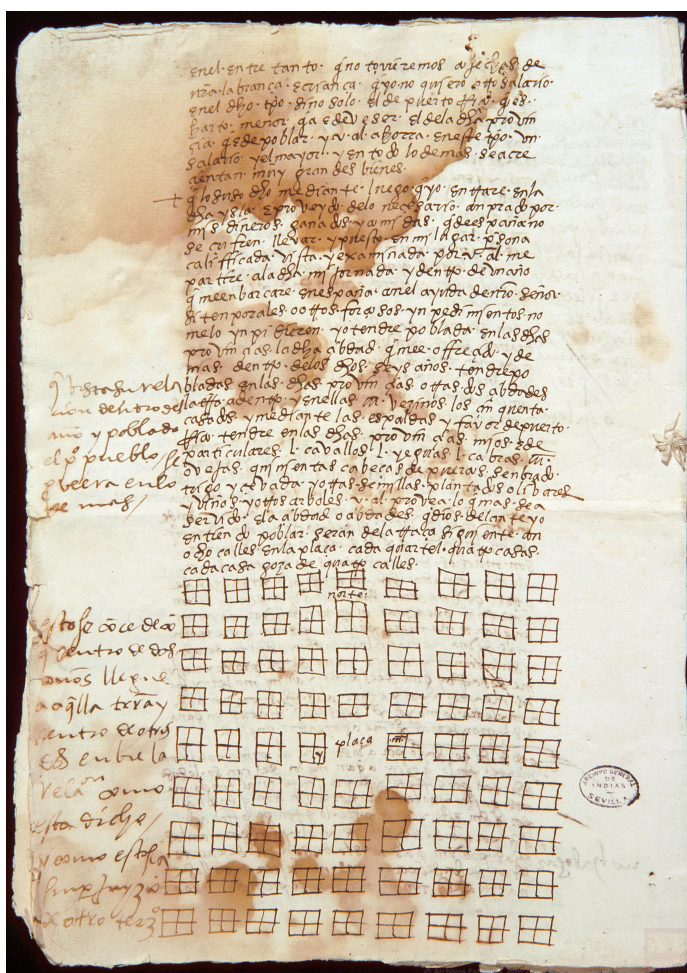 en el entre tanto. q̃ no tovieremos cosechas de
nr̃a labrança e criança. q̃ yo no quiero otro salario
en el dho. tpõ. sino solo el de puerto Rico. q̃ es.
harto. menor. q̃ a de v eser. el de la dha provin
cia. q̃ se de poblar. y v. al. ahorra. en este tpõ. un
salario. y el mayor. y en todo lo demas. se acre
cientan. muy grandes bienes.
q̃ lo suso dho mediante. luego q̃ yo. entrare. en la
dha ysla. e proveydo de lo necesario. conprado por
mis. dineros. ganados. y comidas. q̃ de españa no
se çufren. llevar. y puesto en mi lugar. p̃sona
calificada. vista. y examinada. por v. al. me
partire. a la dha. mi jornada. y dentro. de un año
q̃ me enbarcare. en españa. con el ayuda de nr̃o. señor.
si tenporales. o otros. forçosos. ynpedimientos no
me lo ynpidieren. yo tendre poblada. en las dhas
provinçias. la dha çibdad. q̃ me. offreçi. y de
mas. dentro. de los dhos. seys años. tendre po
bladas. en las. dhas provinçias. otras. dos çibdades
casados. y mediante las. espaldas. y favor de puerto.
Rico. tendre en las dhas. provinçias
particulares. l. cavallos. l. yeguas. l. cabras.
ovejas. quinientas cabeças de puercas. senbrado.
trigo. y çevada. y otras semillas. plantados olibares
y viños. y otros arboles. y v. al. provea. lo q̃ mas. sea
servido. la çibdad. o çibdades. q̃ dios. delante yo
entiendo poblar. seran de la traça siguiente. con
ocho calles. en la plaça. cada quartel. quatro casas.
cada casa goza de quatro calles.
norte.
plaça
q̃ esta su rela
cion dentro del
año y poblado
el p̃o pueblo / se
proveera en lo
de mas /
esto se
q̃ dentro de dos
años llegue
a aq̃lla trra y
dentro de otros
dos enbie la
relaçion como
esta dicho /
y como esto sea
de otro terzo
ARCHIVO GENERAL
DE
INDIAS
SEVILLA